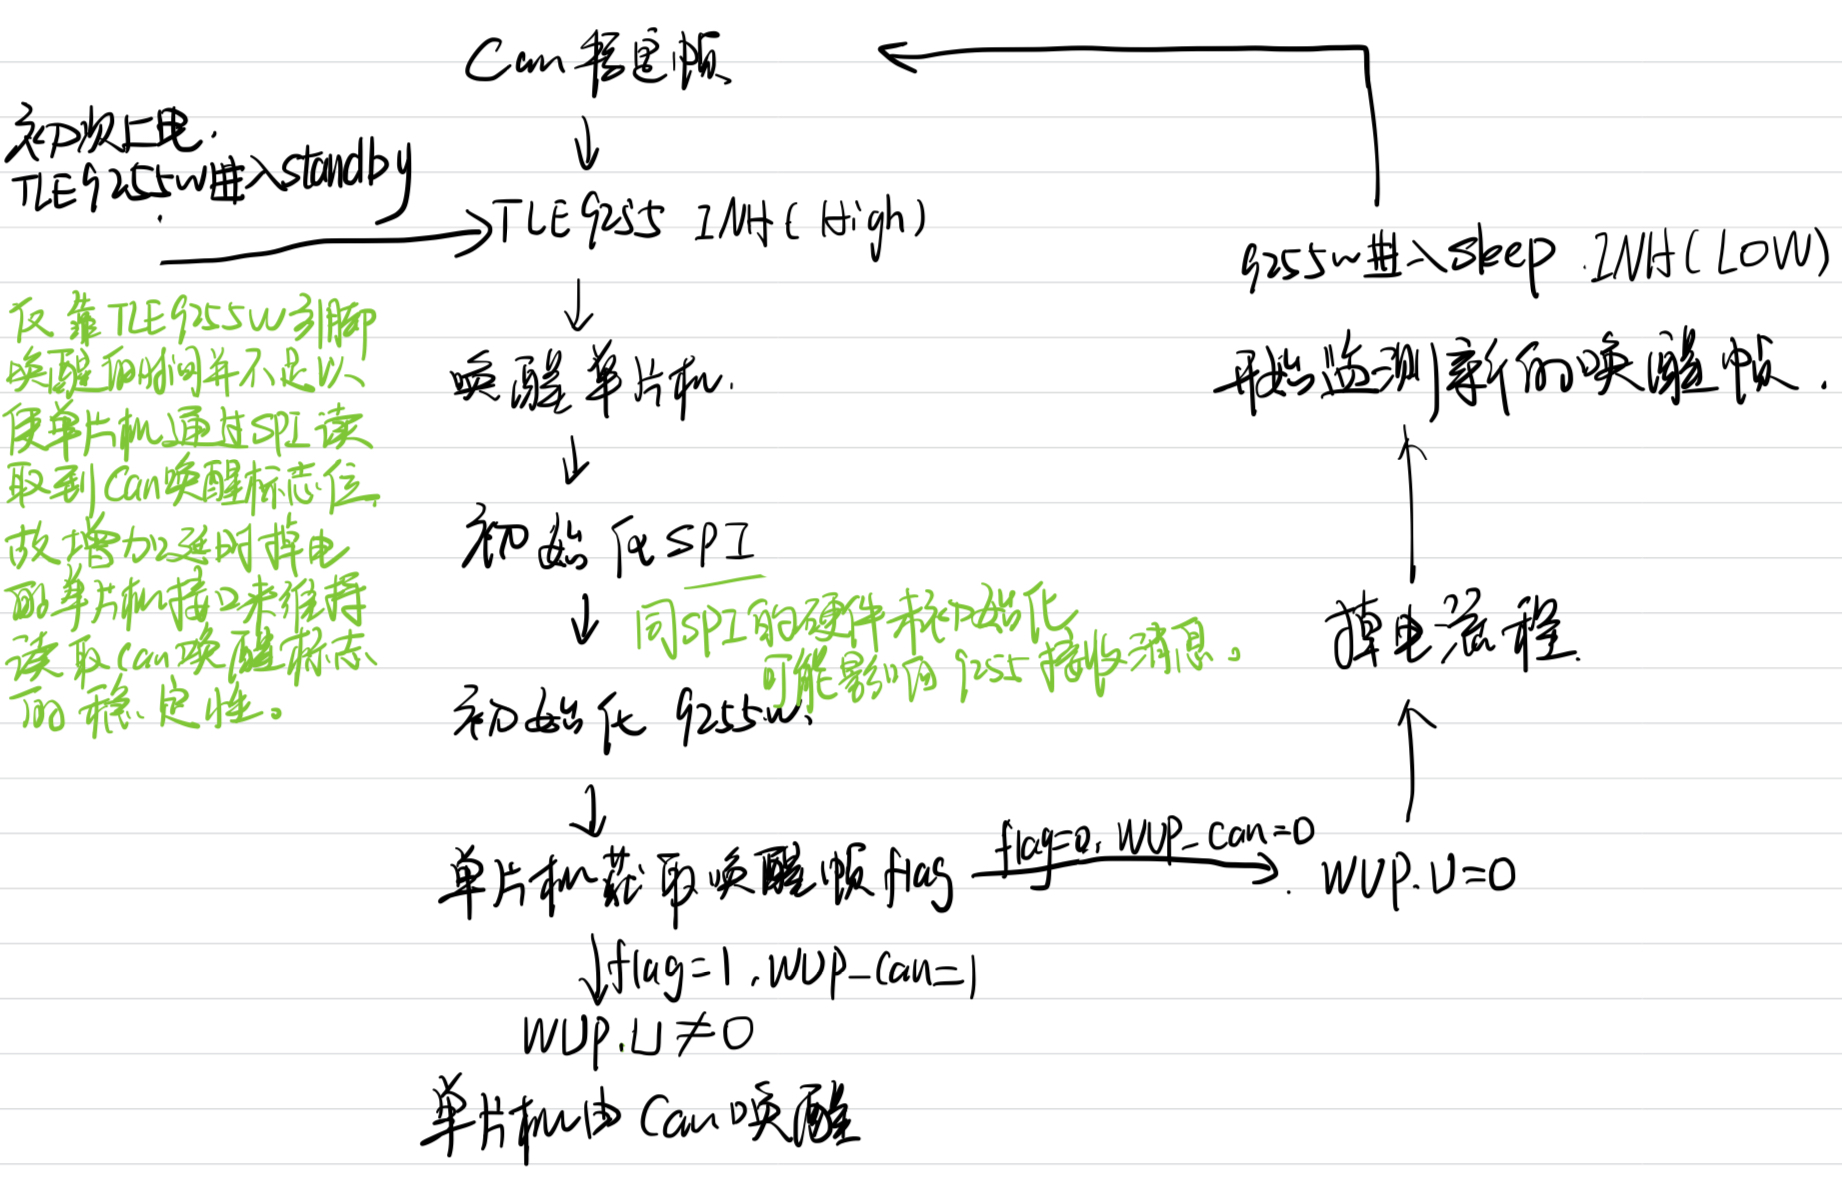 Can 特定帧
初次上电.
TLE9255W进入standby
TLE9255 INH(High)
9255w进入sleep.INH(LOW)
开始监测新的唤醒帧.
仅靠TLE9255W引脚
唤醒的时间并不足以
使单片机通过SPI读
取到Can唤醒标志位,
故增加延时掉电
的单片机接口来维持
读取can唤醒标志
的稳定性。
唤醒单片机.
初始化SPI
同SPI的硬件初始化
可能影响9255接收消息。
初始化 9255w.
掉电流程.
单片机获取唤醒帧flag
flag=0, WUP_Can=0
WUP.U=0
flag=1,WUP_Can=1
WUP.U≠0
单片机由Can唤醒